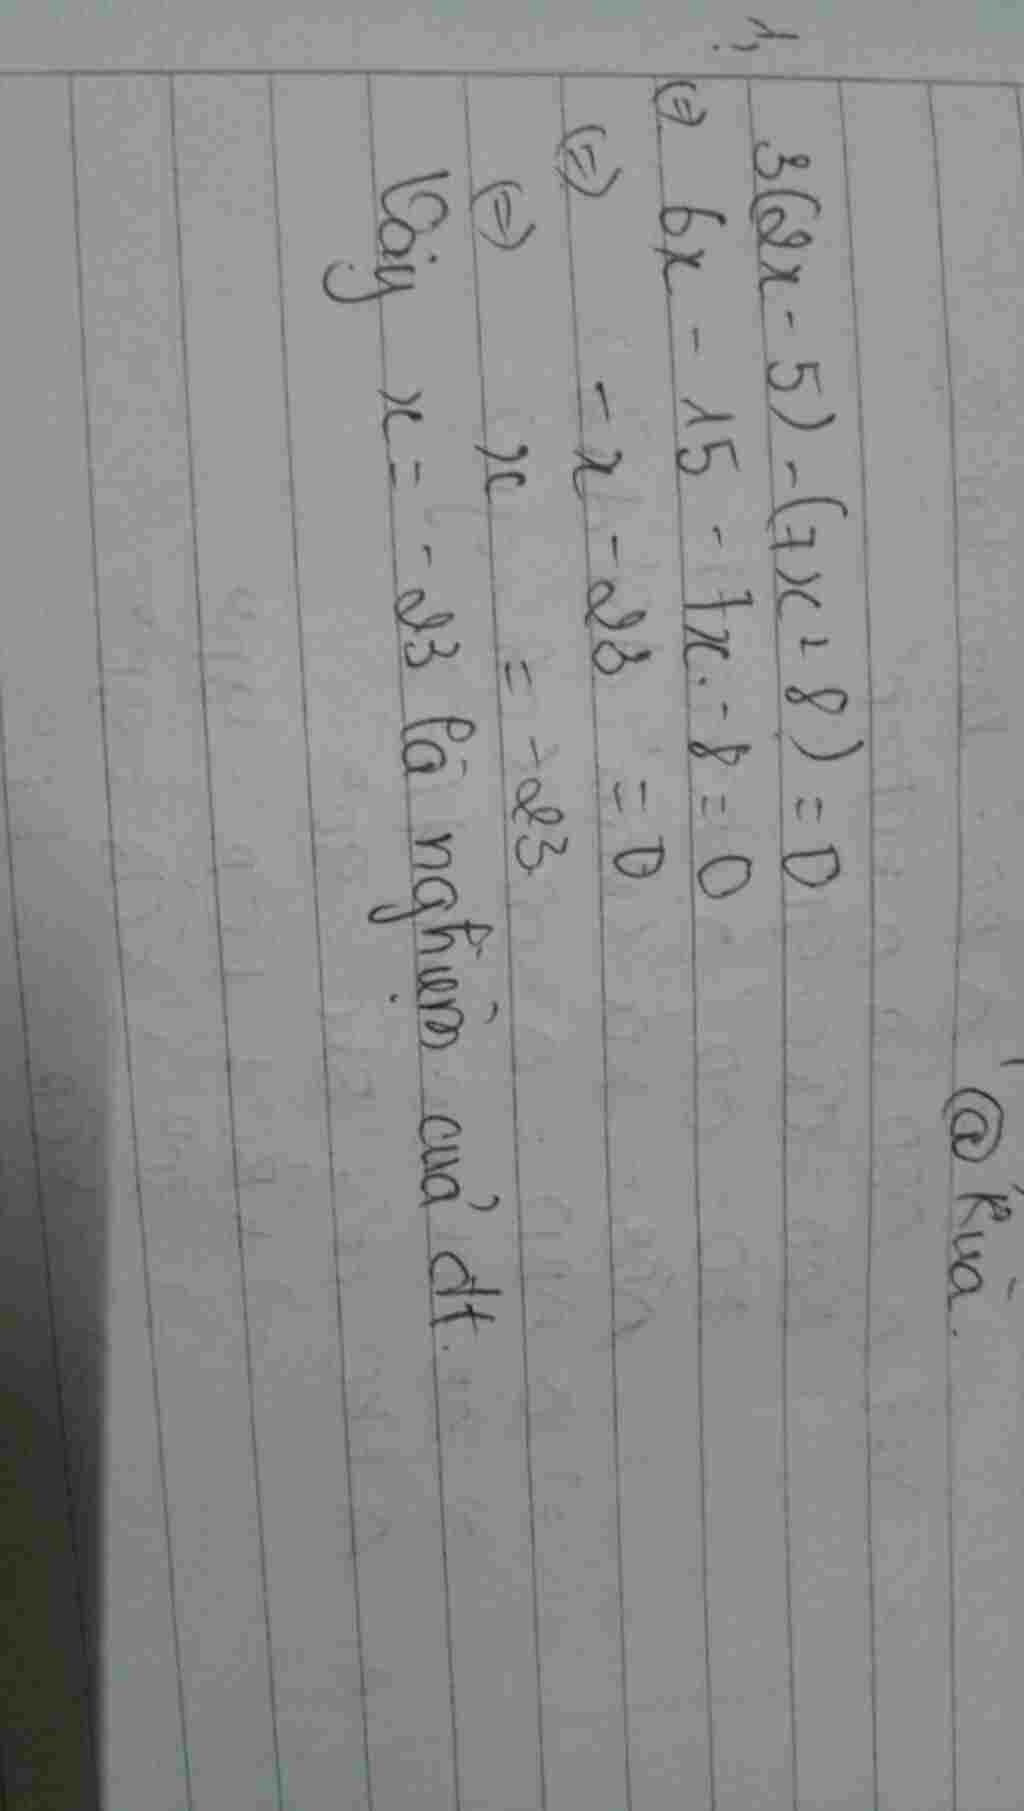 @ Rùa.
1,
3(2x - 5) - (7x + 8) = 0
(=) 6x - 15 - 7x - 8 = 0
(=) - x - 23 = 0
(=) x = - 23
Vậy x = - 23 là nghiệm của đt.